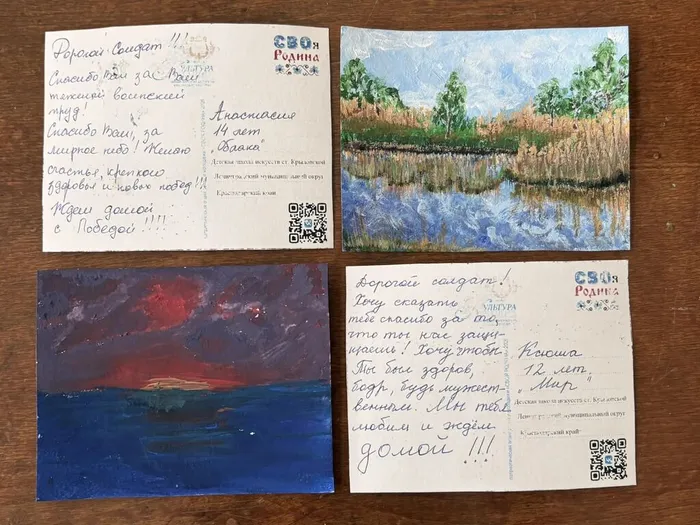 Дорогой Солдат !!!
Спасибо Вам за Ваш
тяжелый воинский
труд!
Спасибо Вам, за
мирное небо! Желаю
счастья, крепкого
здоровья и новых побед!!!
Ждем домой
с Победой !!!!
СВОя
Родина
УЛЬТУРА
Анастасия
14 лет
"Облака"
Детская школа искусств ст. Крыловской
Ленинградский муниципальный округ
Краснодарский край
Дорогой солдат!
Хочу сказать
тебе спасибо за то,
что ты нас защи-
щаешь! Хочу чтобы
Ты был здоров,
бодр, будь мужест-
венным. Мы тебя
любим и ждём
домой !!!
СВОя
Родина
УЛЬТУРА
Ксюша
12 лет.
"Мир"
Детская школа искусств ст. Крыловской
Ленинградский муниципальный округ
Краснодарский край